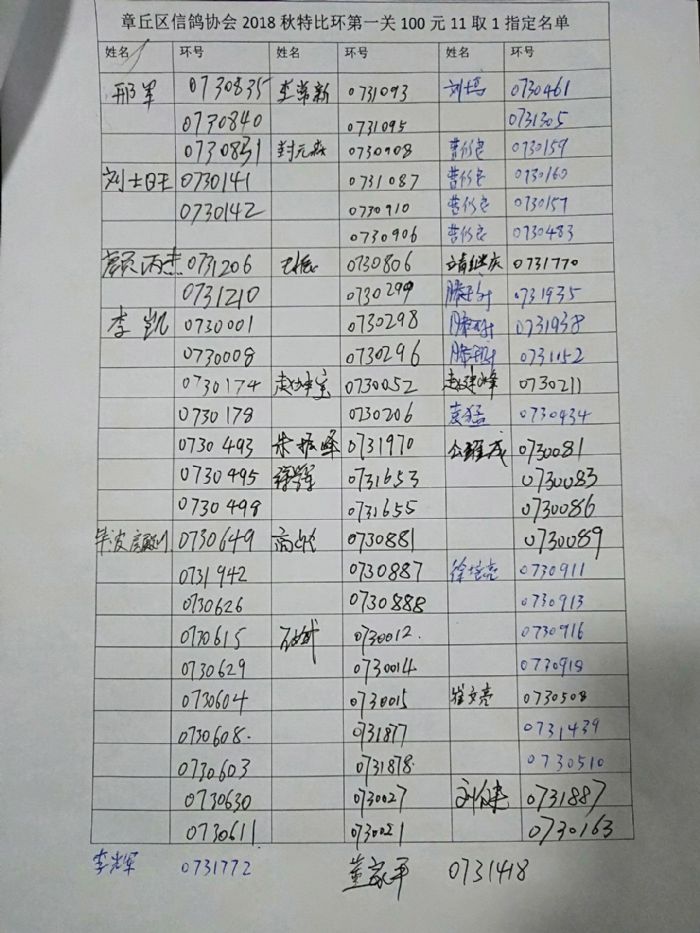 章丘区信鸽协会 2018 秋特比环第一关 100 元 11 取 1 指定名单
姓名 环号 姓名 环号 姓名 环号
邢军 0730835 李常新 0731093 刘 0730461
0730840 0731095 0731305
0730831 封元 0730908 曹 0730159
刘士旺 0730141 0731087 曹 0730160
0730142 0730910 曹 0730157
0730906 曹 0730483
丙杰 0731206 0730806 靖继庆 0731770
0731210 0730299 滕 0731935
李凯 0730001 0730298 滕 0731938
0730008 0730296 滕 0731152
0730174 赵坤宝 0730052 赵建峰 0730211
0730178 0730206 袁猛 0730434
0730493 朱振峰 0731970 公 0730081
0730495 0731653 0730083
0730499 0731655 0730086
毕波 0730649 高 0730881 0730089
0731942 0730887 徐培亮 0730911
0730626 0730888 0730913
0730615 石斌 0730012. 0730916
0730629 0730014. 0770918
0730604 0730015 崔文亮 0730508
0730608. 0731877 0731439
0730603 0731878. 0730510
0730630 0730027 刘健 0731887
0730611 0730021 0730163
李光辉 0731772 董家平 0731418